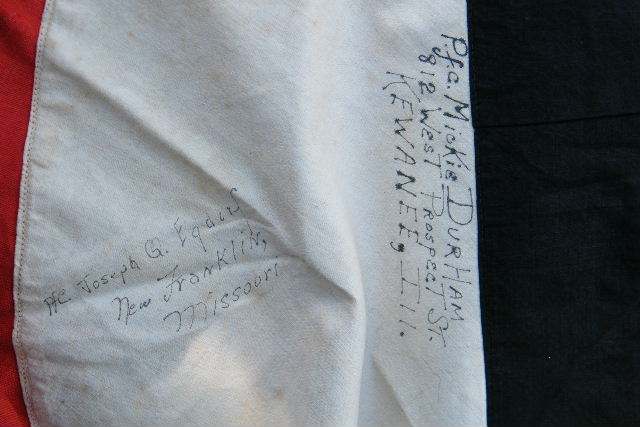 P.f.c. Mickie DURHAM
812 WEST PROSPECT ST.
KEWANEE, Ill.
Pfc Joseph G.
New Franklin,
Missouri